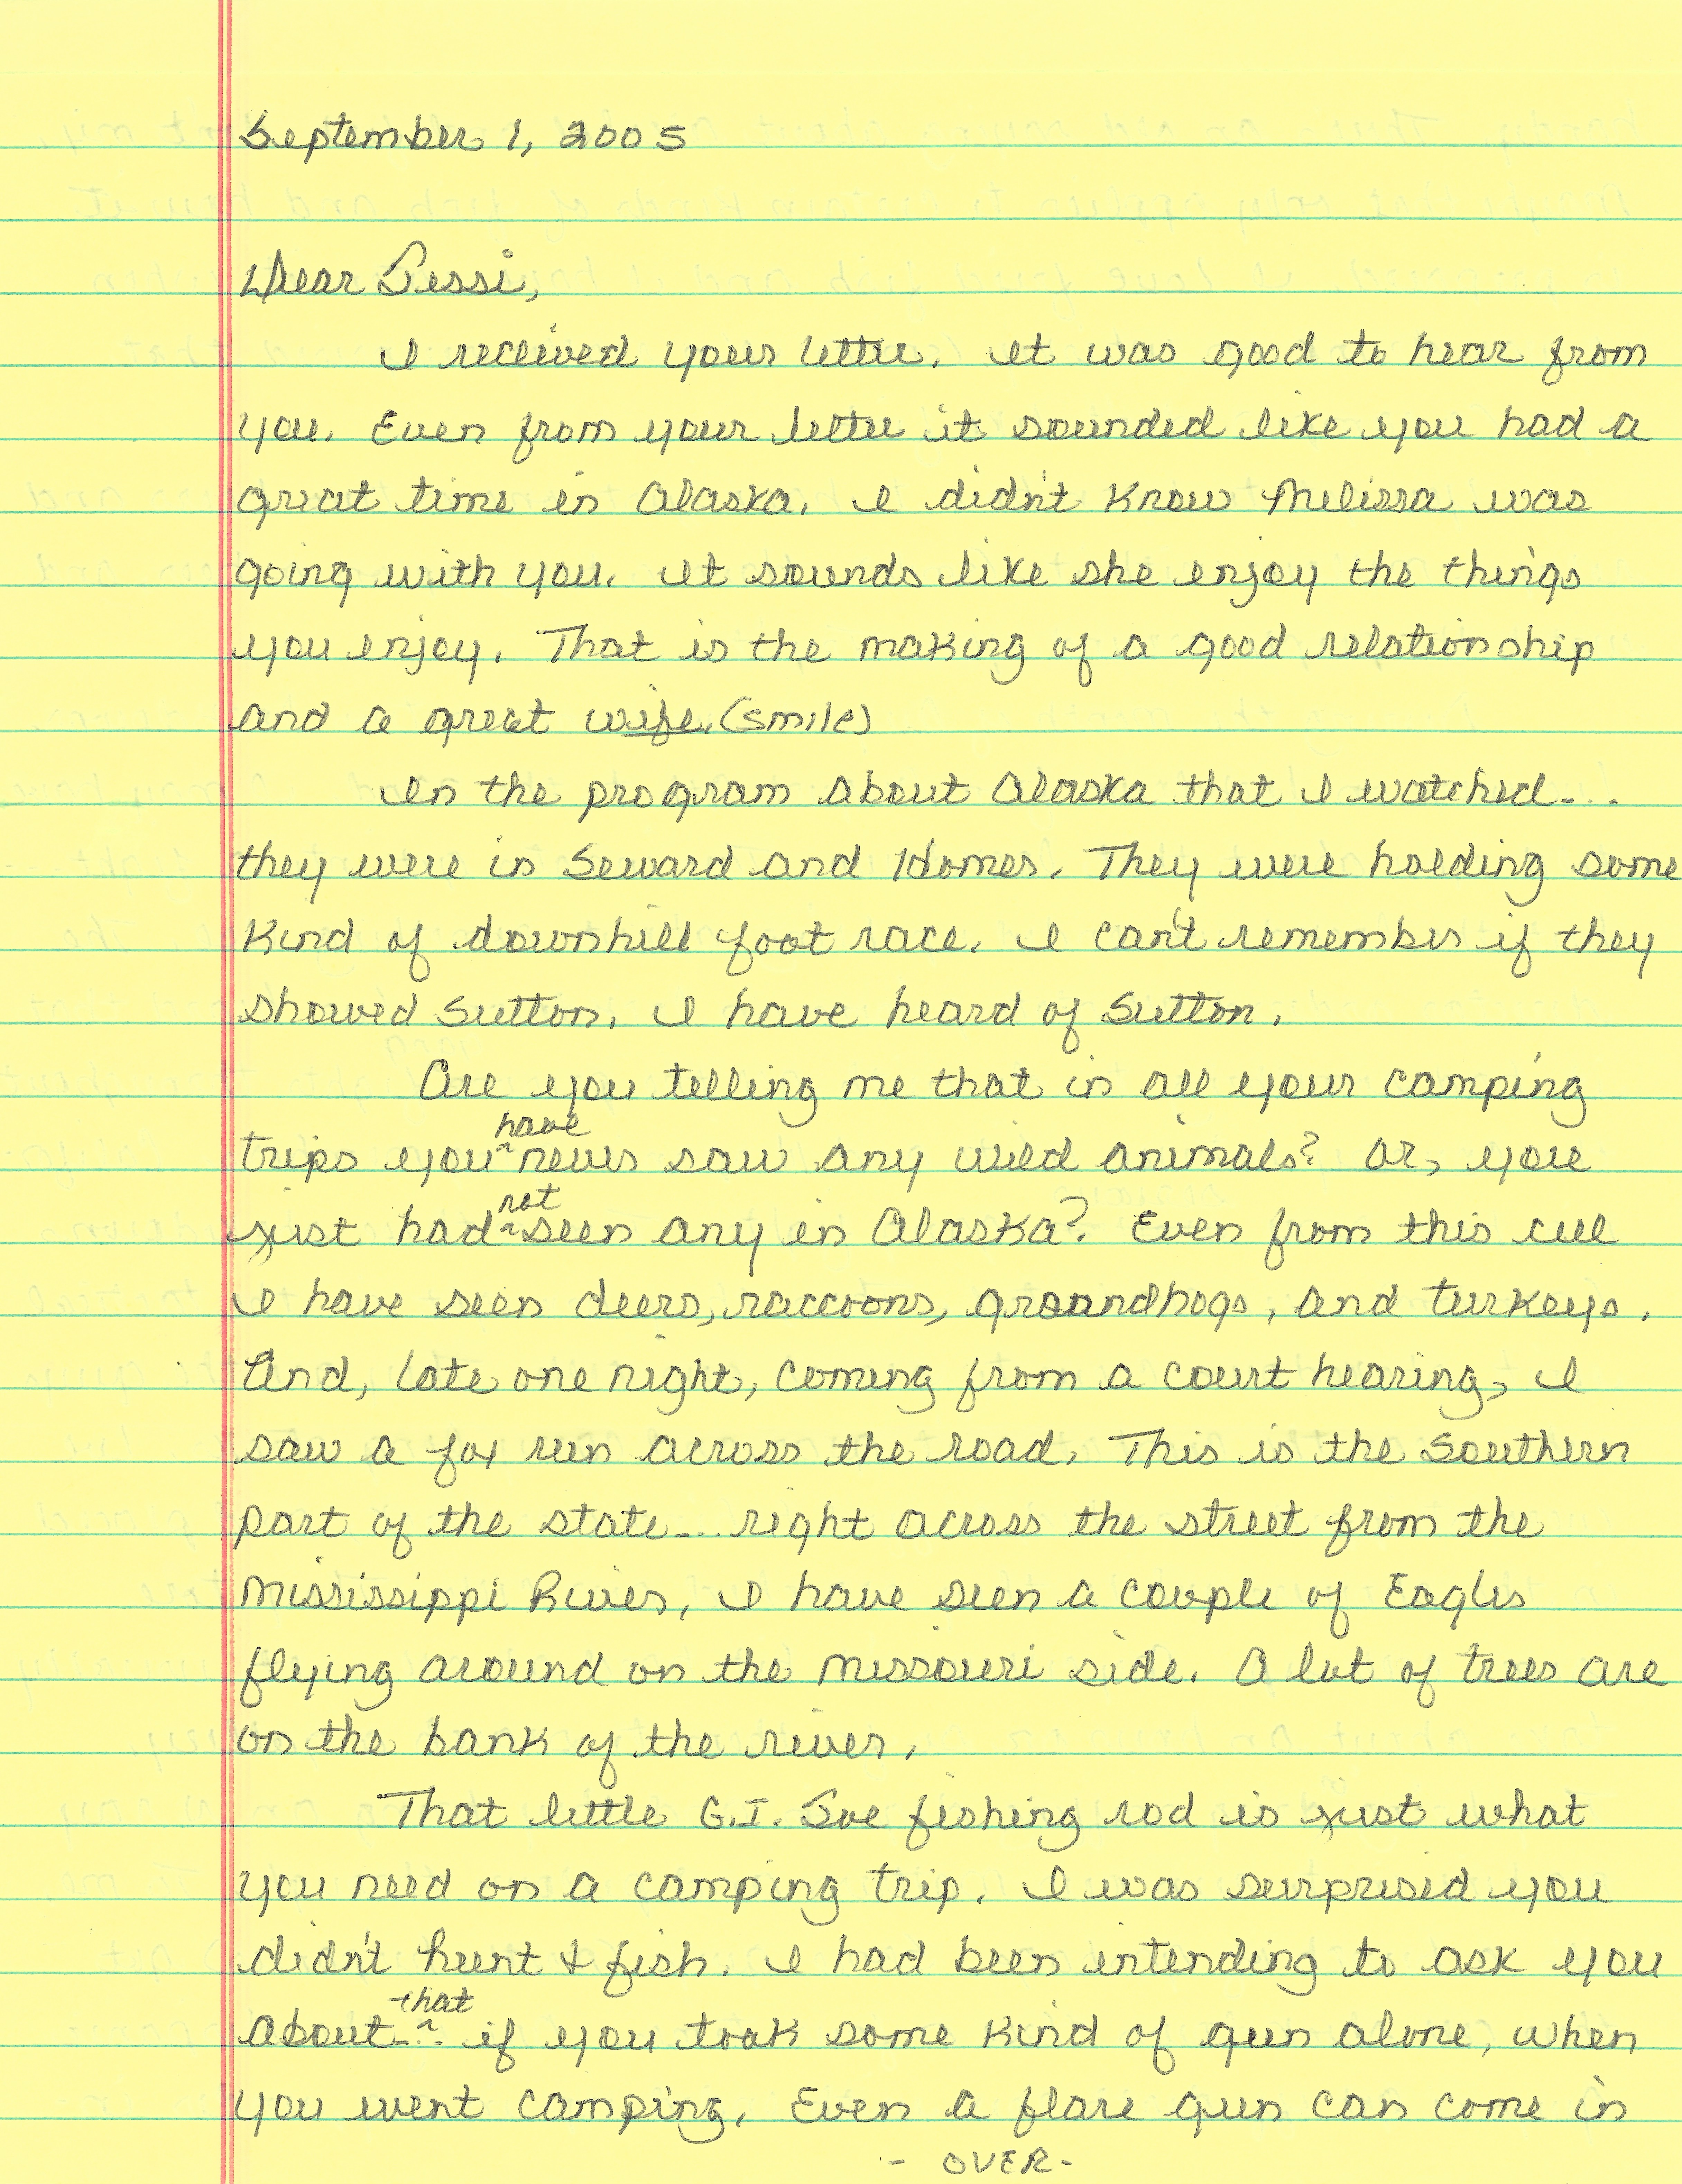 September 1, 2005
Dear Jessi,
I received your letter. It was good to hear from
you. Even from your letter it sounded like you had a
great time in Alaska. I didn't know Melissa was
going with you. It sounds like she enjoy the things
you enjoy. That is the making of a good relationship
and a great wife. (smile)
In the program about Alaska that I watched...
they were in Seward and Homer. They were holding some
kind of downhill foot race. I can't remember if they
showed Sutton. I have heard of Sutton.
Are you telling me that in all your camping
trips you have never saw any wild animals? Or, you
just had not seen any in Alaska? Even from this cell
I have seen deers, raccoons, groundhogs, and turkeys.
And, late one night, coming from a court hearing, I
saw a fox run across the road. This is the southern
part of the state... right across the street from the
Mississippi River. I have seen a couple of Eagles
flying around on the Missouri side. A lot of trees are
on the bank of the river.
That little G.I. Joe fishing rod is just what
you need on a camping trip. I was surprised you
didn't hunt & fish. I had been intending to ask you
about that... if you took some kind of gun alone, when
you went camping. Even a flare gun can come in
- OVER -